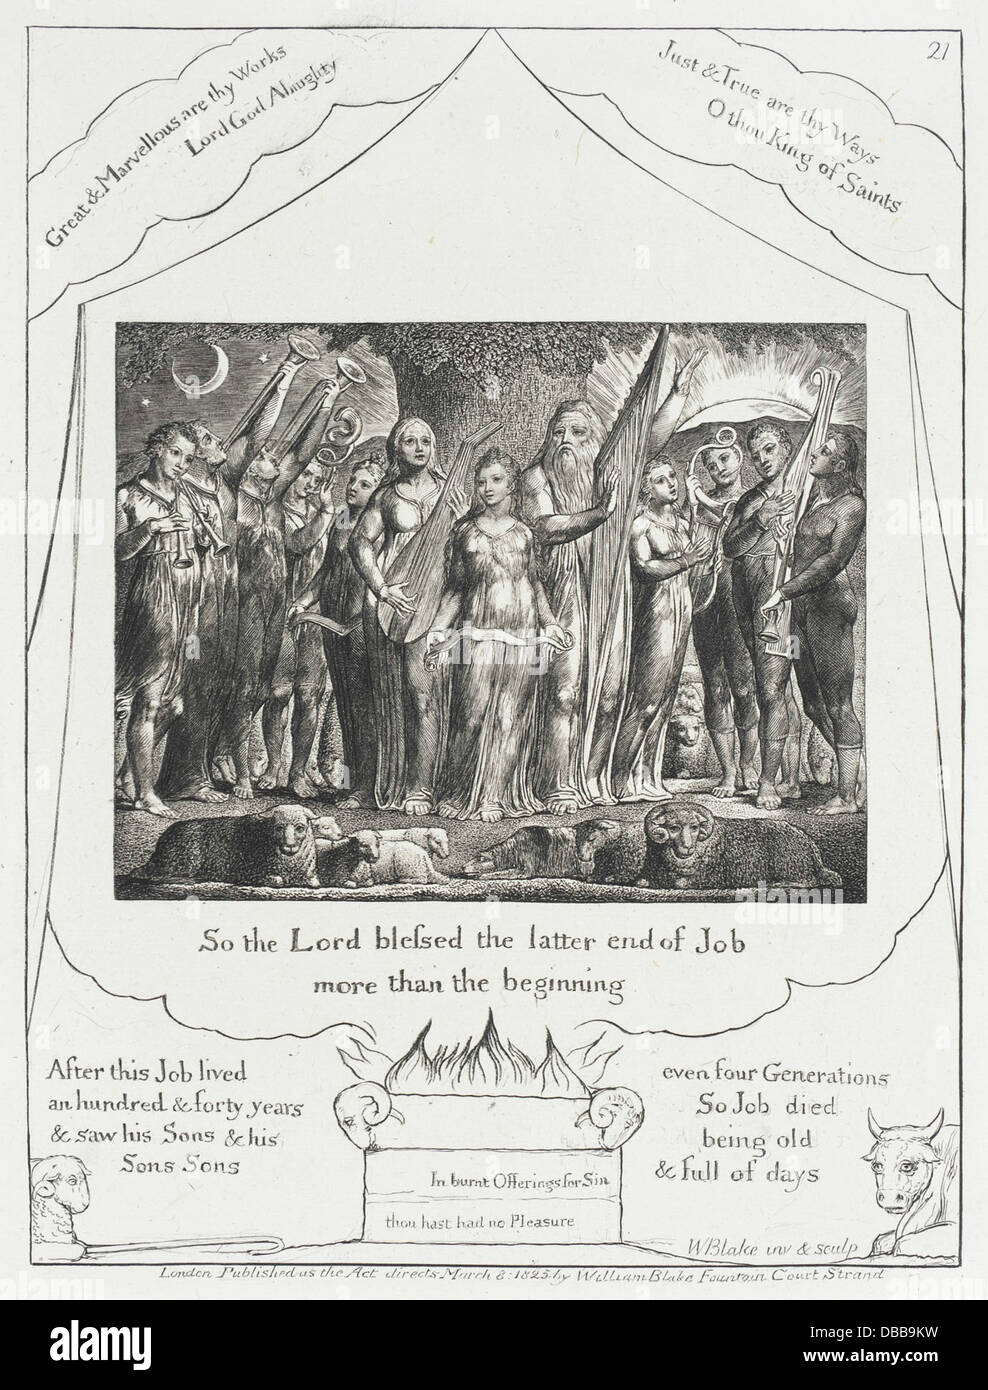 21
Great & Marvellous are thy Works
Lord God Almighty
Just & True are thy Ways
O thou King of Saints
So the Lord blefsed the latter end of Job
more than the beginning
After this Job lived
an hundred & forty years
& saw his Sons & his
Sons Sons
even four Generations
So Job died
being old
& full of days
In burnt Offerings for Sin
thou hast had no Pleasure
WBlake inv & sculp
London Published as the Act directs March 8: 1825 by William Blake Fountain Court Strand
alamy
Image ID: DBB9KW
www.alamy.com